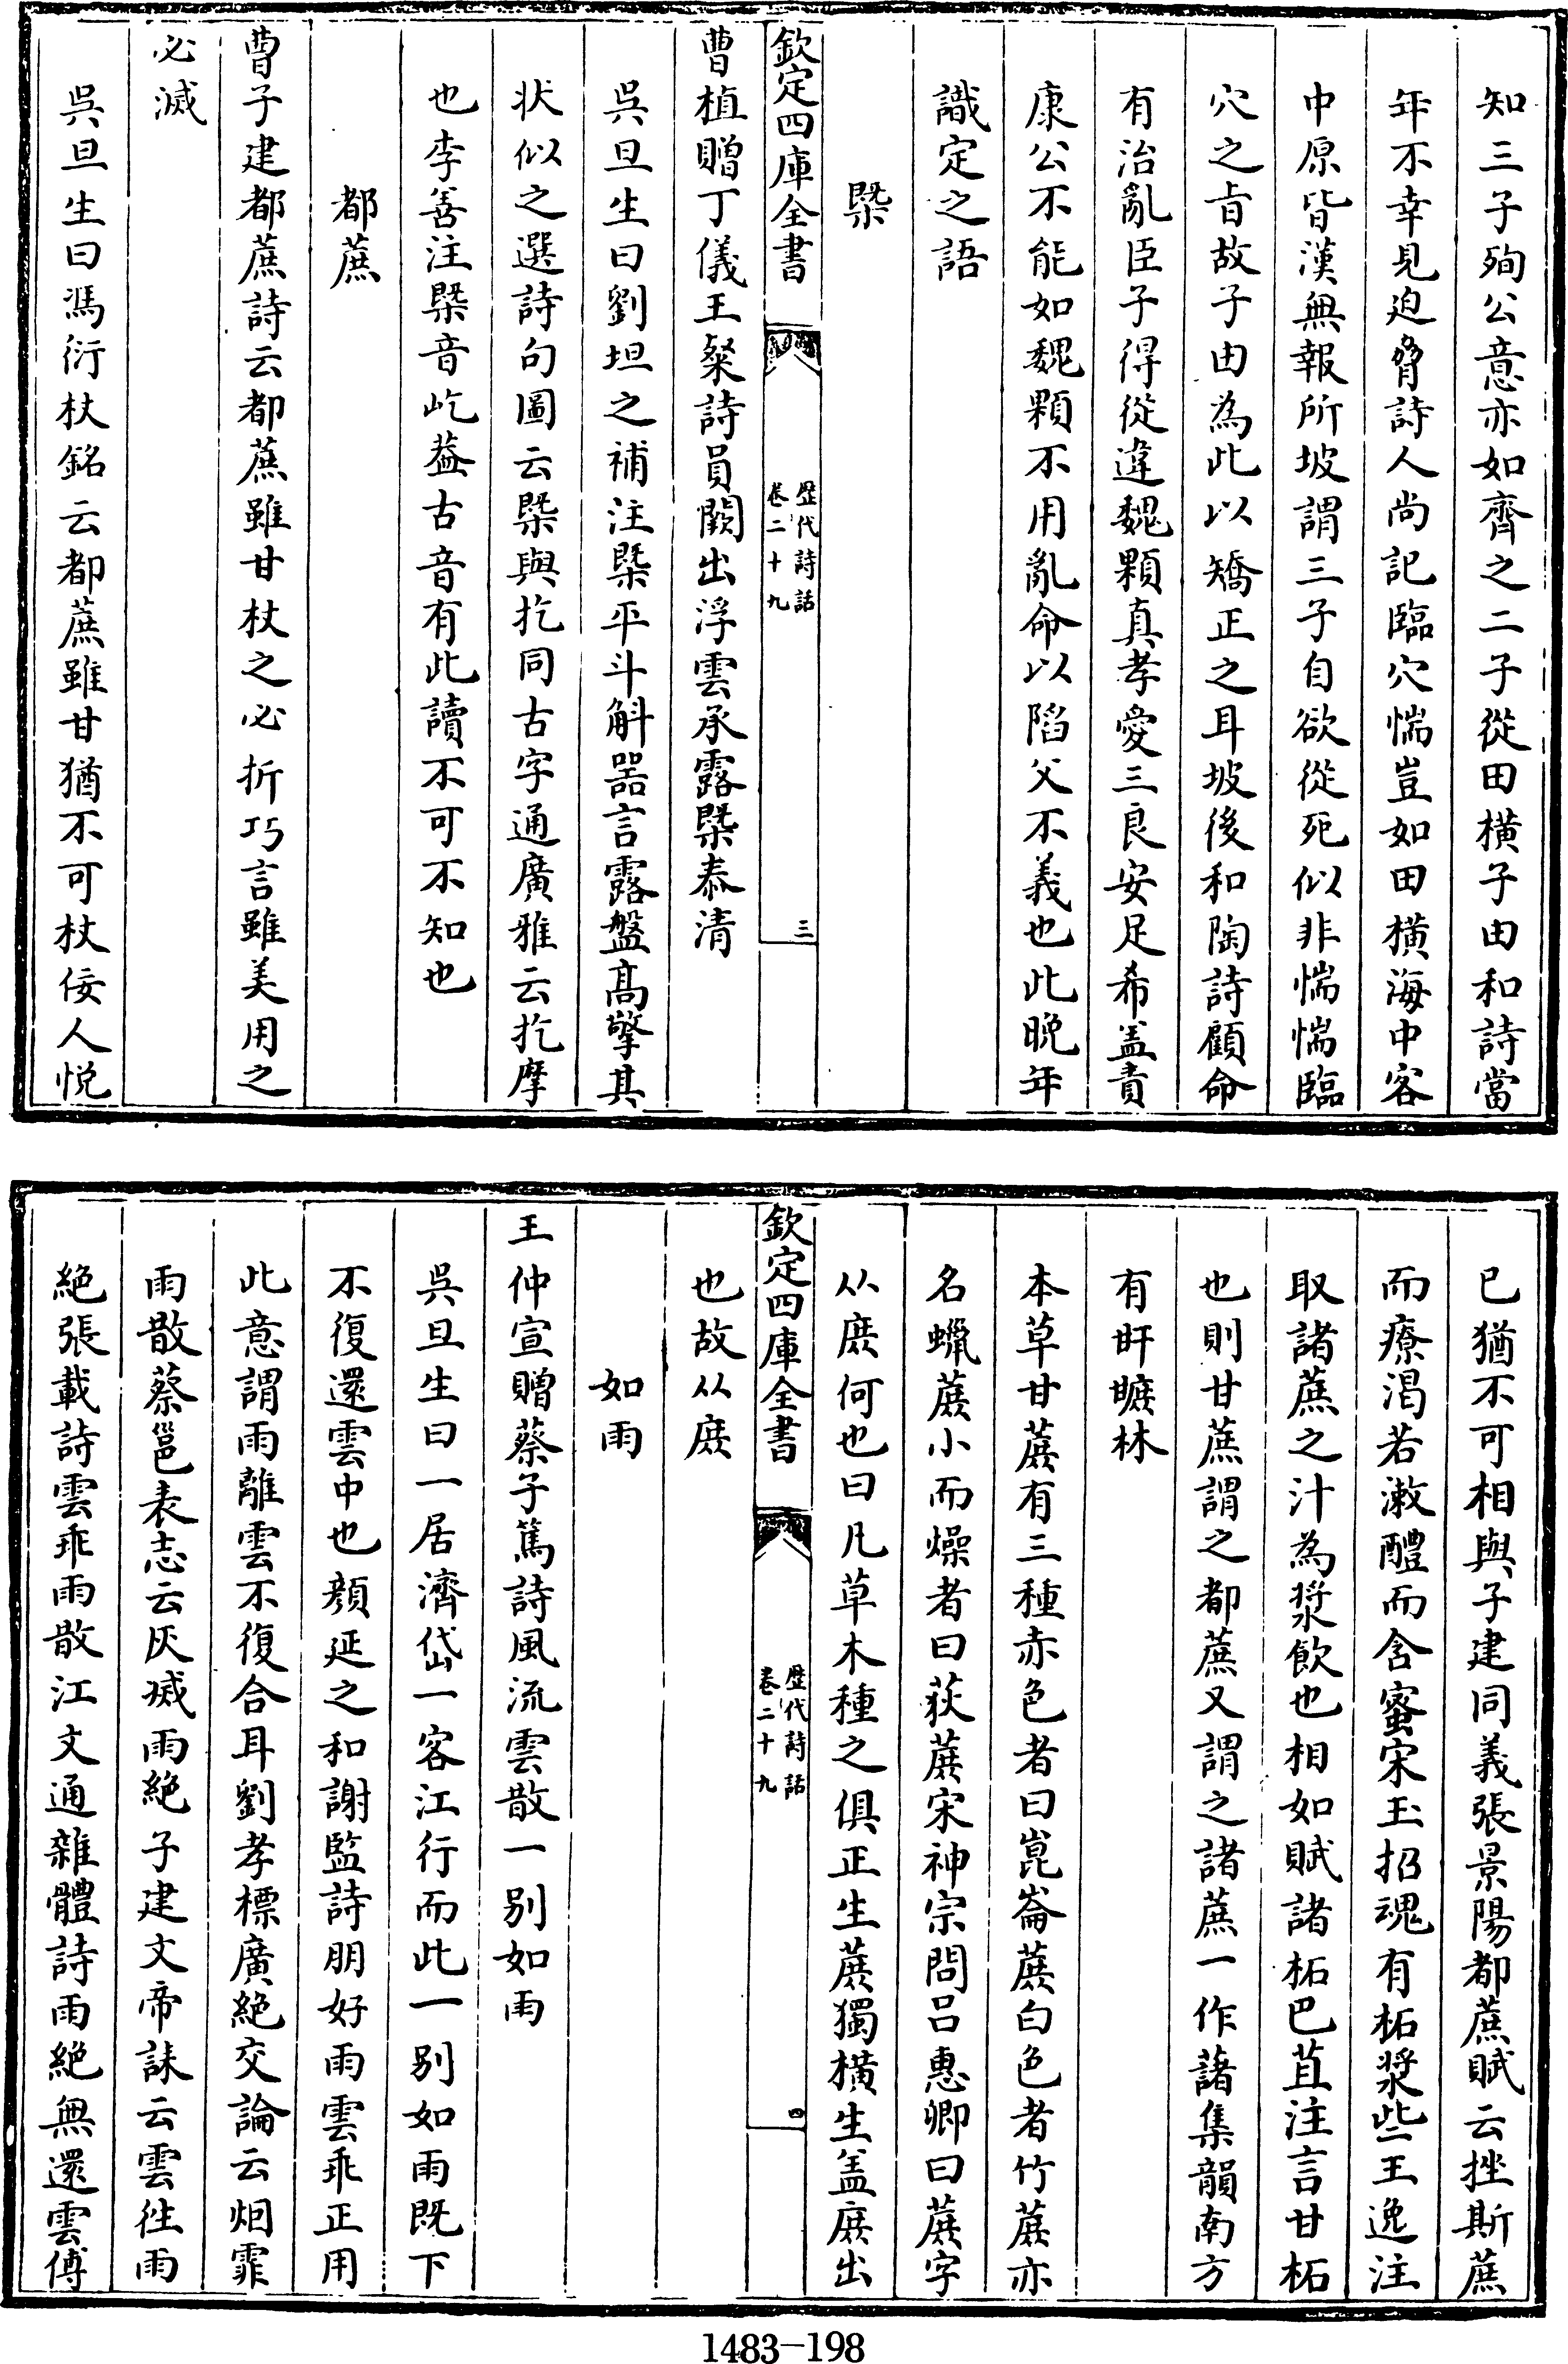 知三子殉公意亦如齊之二子從田橫子由和詩當
年不幸見迫脅詩人尚記臨穴惴豈如田橫海中客
中原皆漢無報所坡謂三子自欲從死似非惴惴臨
穴之旨故子由為此以矯正之耳坡後和陶詩顧命
有治亂臣子得從違魏顆真孝愛三良安足希盖責
康公不能如魏顆不用亂命以陷父不義也此晚年
識定之語
槩
欽定四庫全書
歴代詩話
卷二十九
三
曹植贈丁儀王粲詩員闕出浮雲承露槩泰清
吳旦生曰劉坦之補注槩平斗斛器言露盤髙擎其
狀似之選詩句圖云槩與扢同古字通廣雅云扢摩
也李善注槩音屹葢古音有此讀不可不知也
都蔗
曹子建都蔗詩云都蔗雖甘杖之必折巧言雖美用之
必滅
吳旦生曰馮衍杖銘云都蔗雖甘猶不可杖佞人悦
已猶不可相與子建同義張景陽都蔗賦云挫斯蔗
而療渴若漱醴而含蜜宋玉招魂有柘漿些王逸注
取諸蔗之汁為漿飲也相如賦諸柘巴苴注言甘柘
也則甘蔗謂之都蔗又謂之諸蔗一作藷集韻南方
有㽁䗪林
本草甘蔗有三種赤色者曰崑崙蔗白色者竹蔗亦
名蠟蔗小而燥者曰荻蔗宋神宗問呂惠卿曰蔗字
从庶何也曰凡草木種之俱正生蔗獨橫生盖庶出
欽定四庫全書
歴代詩話
卷二十九
四
也故从庶
如雨
王仲宣贈蔡子篤詩風流雲散一别如雨
吳旦生曰一居濟岱一客江行而此一别如雨既下
不復還雲中也顔延之和謝監詩朋好雨雲乖正用
此意謂雨離雲不復合耳劉孝標廣絶交論云烟霏
雨散蔡邕表志云灰滅雨絶子建文帝誄云雲徃雨
絶張載詩雲乖雨散江文通雜體詩雨絶無還雲傅
1483-198